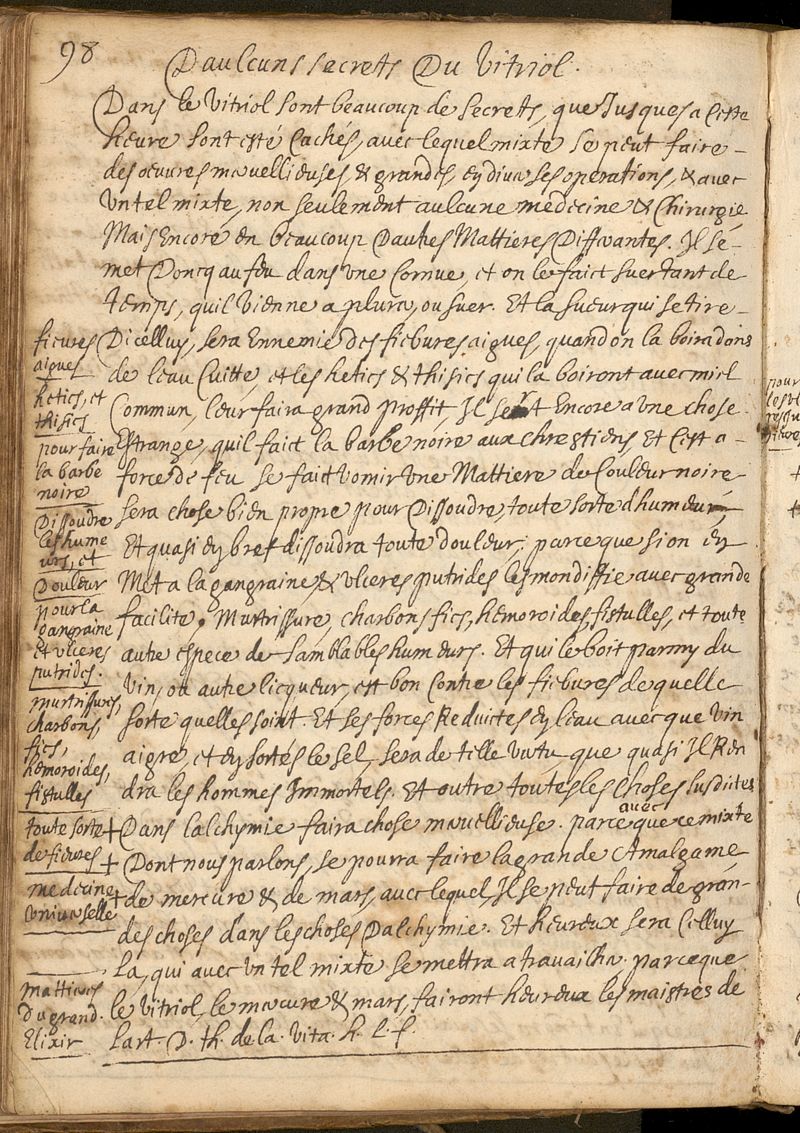 98
Daulcuns secretts Du Vitriol.
Dans le Vitriol sont beaucoup de secretts, que Jusques a Cette
heure sont esté Cachés, avec lequel mixte se peut faire
des oeuvres mervellieuses & grandes, ey diverses operations, & avec
Un tel mixte, non seulement aulcune medecine & Chirurgie
Mais Encore en beaucoup Dautres Mattieres Differantes. Il se
met Doncq au feu dans une Cornue, et on le faict suer tant de
temps, quil Vienne a plurer, ou suer. Et la sueur qui se tire
Dicelluy, sera Ennemie des fiebures aigues, quand on la boira dans
de leau Cuitte, et les hetics & thisics qui la boiront avec miel
Commun, leur faira grand proffit. Il sert Encore a une chose
Estrange, quil faict la barbe noire aux chrestiens, Et Cest a
force de feu se faict vomir Une Mattiere de Couleur noire
sera chose bien propre pour Dissoudre, toute sorte dhumeur,
Et quasi ey bref dissoudra toute douleur; parce que si on ey
Met a la gangraine & ulceres putrides les mondiffie avec grande
facilite, Murtrissure, charbons fics, hemoroides, fistulles, et toute
autre espece de samblables humeurs. Et qui le boit parmy du
vin, ou autre licqueur, est bon Contre les fiebures de quelle
sorte quelles soint. Et ses forces Reduictes ey leau avec que Vin
aigre, et ey sortés le sel, sera de tille vertu que quasi Il Ren
dra les hommes Immortels. Et outre toutes les choses susdites
avec
Dans lalchymie faira chose mervellieuse. parce que ce mixte
Dont nous parlons, se pourra faire la grande Amalgame
de mercure & de mars, avec lequel, Il se peut faire de gran-
des choses dans les choses Dalchymie. Et heureux sera Celluy
La, qui avec Un tel mixte se mettra a travailher. parce que
le Vitriol, le mercure & mars, fairont heureux les maistres de
Lart. D. th. de la. Vita. h. l. f.
fievres
aigues
hetics, et
thisics
pour faire
la barbe
noire
Dissoudre
les hume
urs, et
Douleur
pour la
gangraine
Et ulceres
putrides.
murtrissures,
charbons,
fics,
hemoroides,
fistulles
toute sorte +
de fievres +
medecine +
Universelle
mattieres
du grand.
Elixir
pour